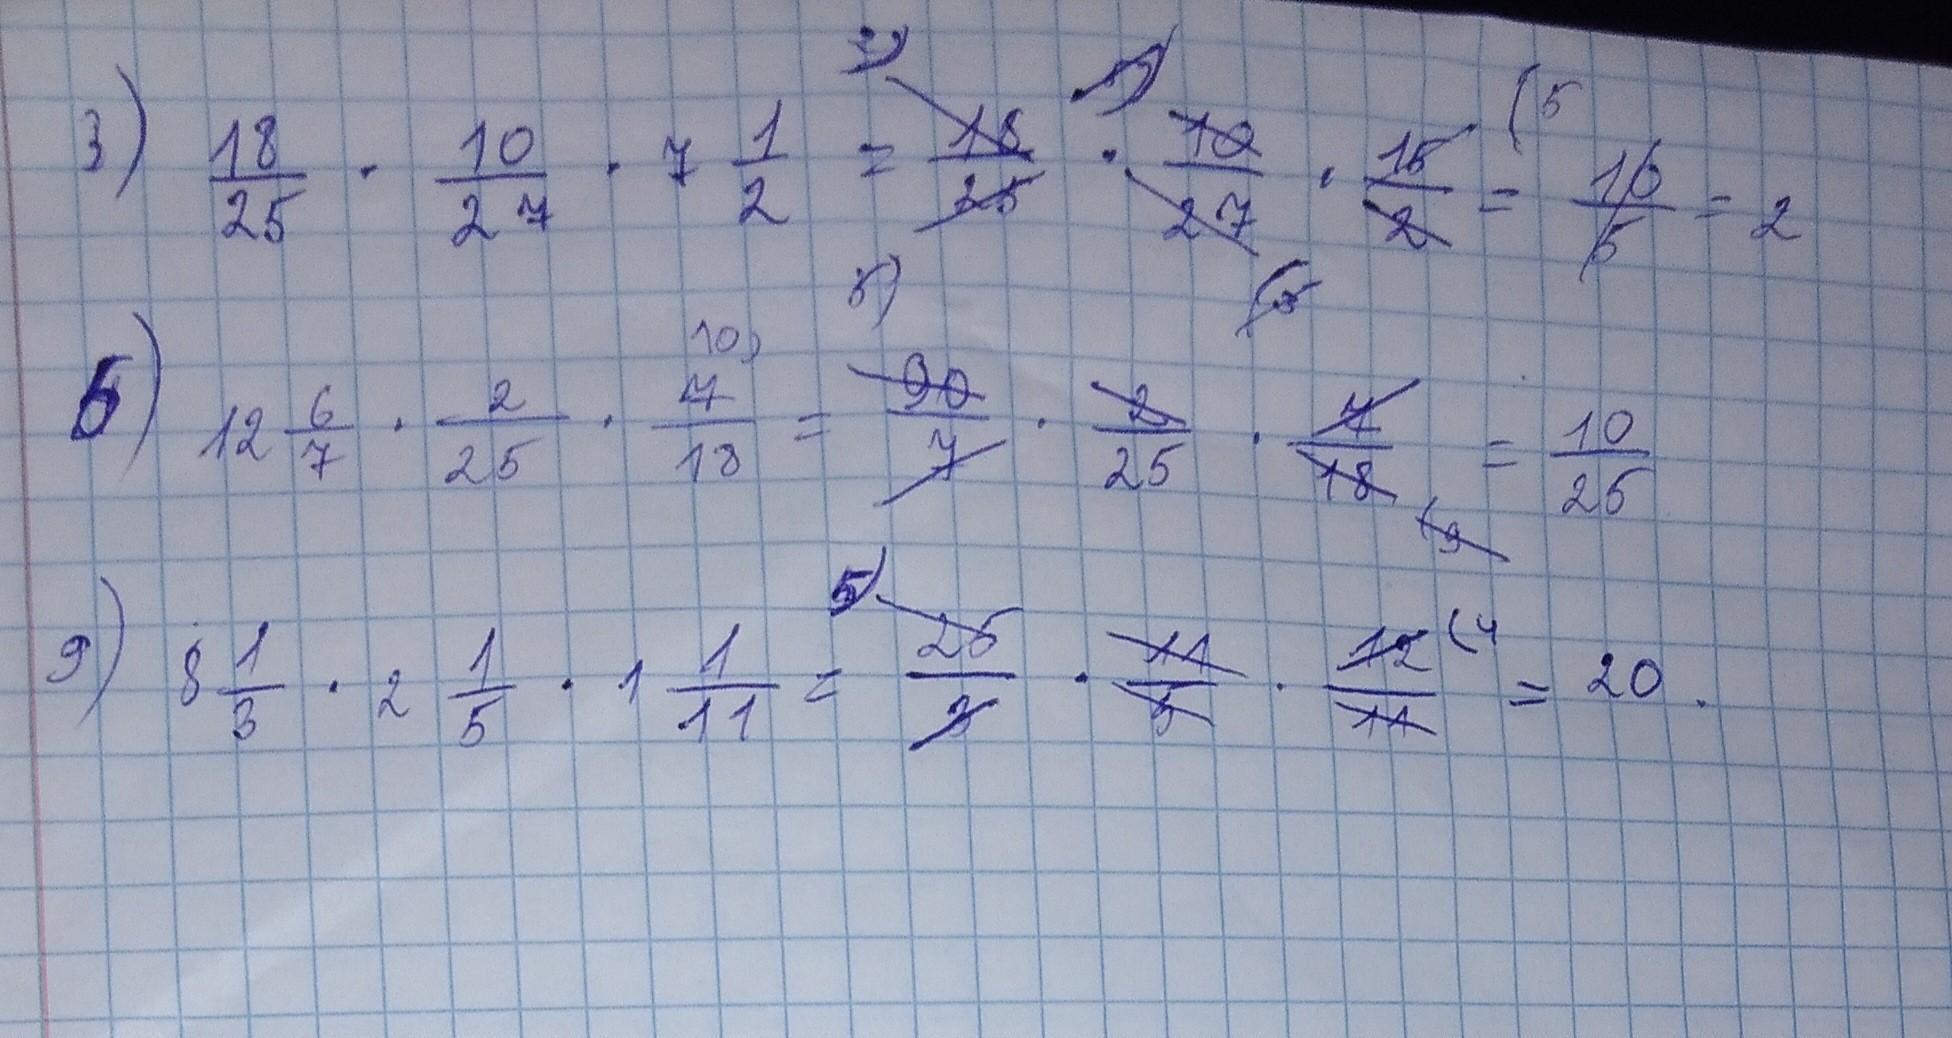 3) 18/25 · 10/27 · 7 1/2 = 18/25 · 10/27 · 15/2 = (5 10/5 = 2
6) 12 6/7 · 2/25 · 10) 7/18 = 90/7 · 2/25 · 7/18 (9 = 10/25
9) 8 1/3 · 2 1/5 · 1 1/11 = 5) 25/3 · 11/5 · 12/11 (4 = 20.